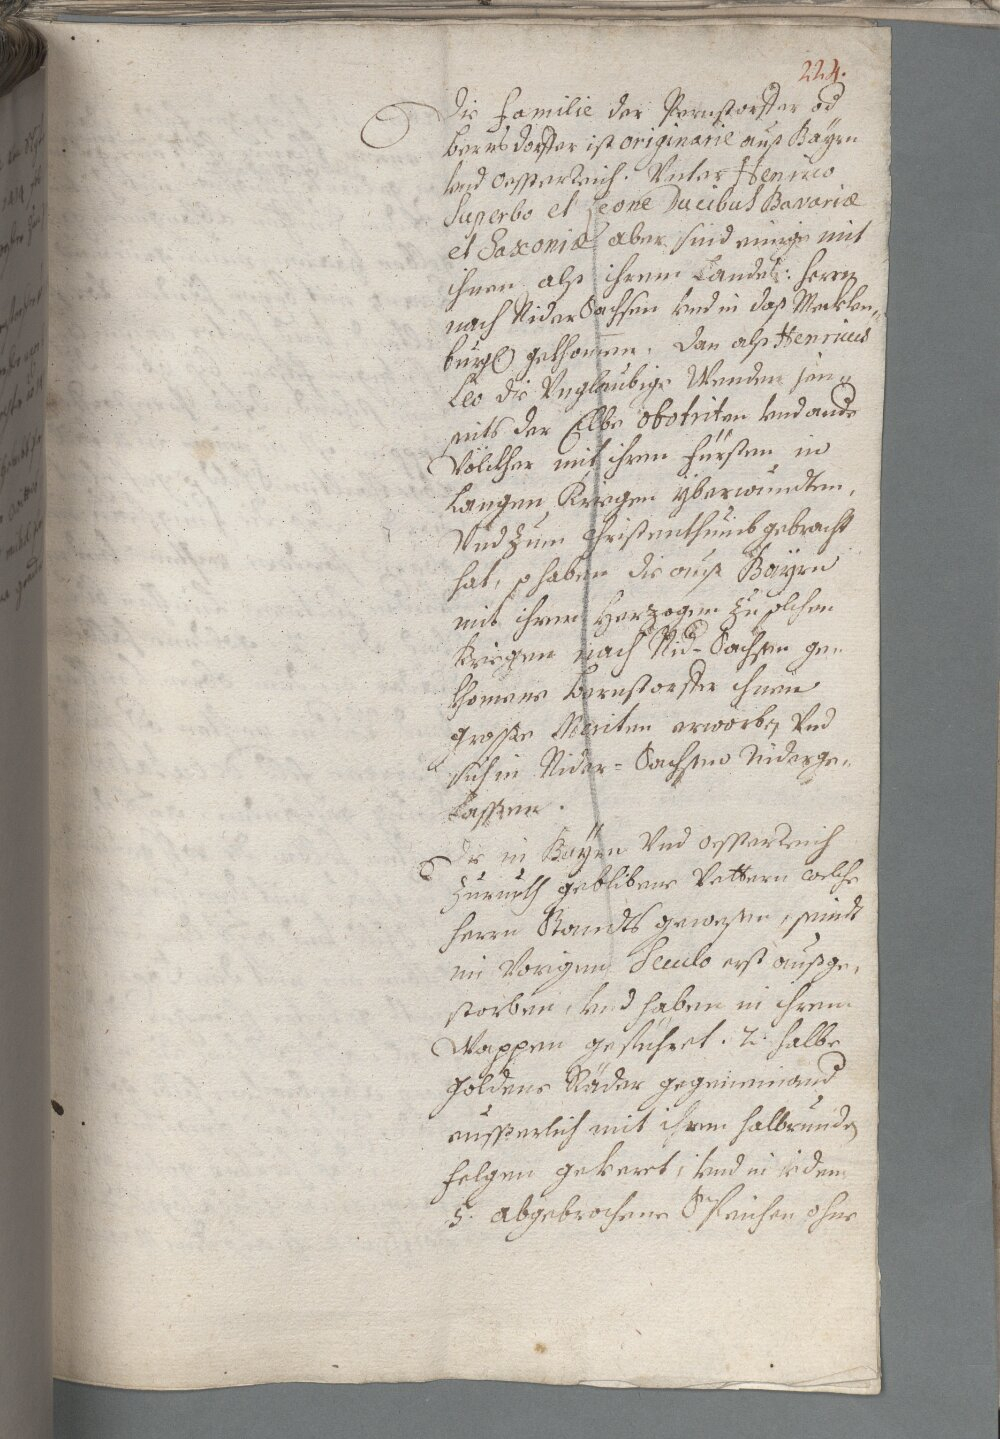 224.
Die Familie der Pernstorffer od
Bernsdorffer ist originarie auß Bayrn
vnd Oesterreich. Vnter Henrico
Superbo et Leone Ducibus Bavariæ
et Saxoniæ aber sind einige mit
ihnen alß ihrem Landts: Herrn
nach Nider Sachsen vnd in daß Mecklen„
burg gekhommen. Dan alß Henricus
Leo die Vnglaubige Wenden jen„
seits der Elbe Obotriten vnd ande
Völckher mit ihren Fürsten in
Langen Kriegen yberwundten,
Vnd zum Christenthumb gebracht
hat, so haben die auß Bayrn
mit ihren Herzogen zu solchen
Kriegen nach Nid-Sachsen ge„
khomene Bernstorffer ihnen
grosse Meriten erworben Vnd
sich in Nider-Sachsen Niderge„
Lassen.
Die in Bayrn Vnd Oesterreich
Zuruckh geblibene Vettern welche
Herrn Standts gewesen, seindt
im Vorigen Seculo erst außge„
storben, vnd haben in ihrem
Wappen geführet. 2. halbe
goldene Räder gegeneinand
eusserlich mit ihren halbrunden
Felgen gekeret, vnd in iedem
5. abgebrochene Speichen ohne